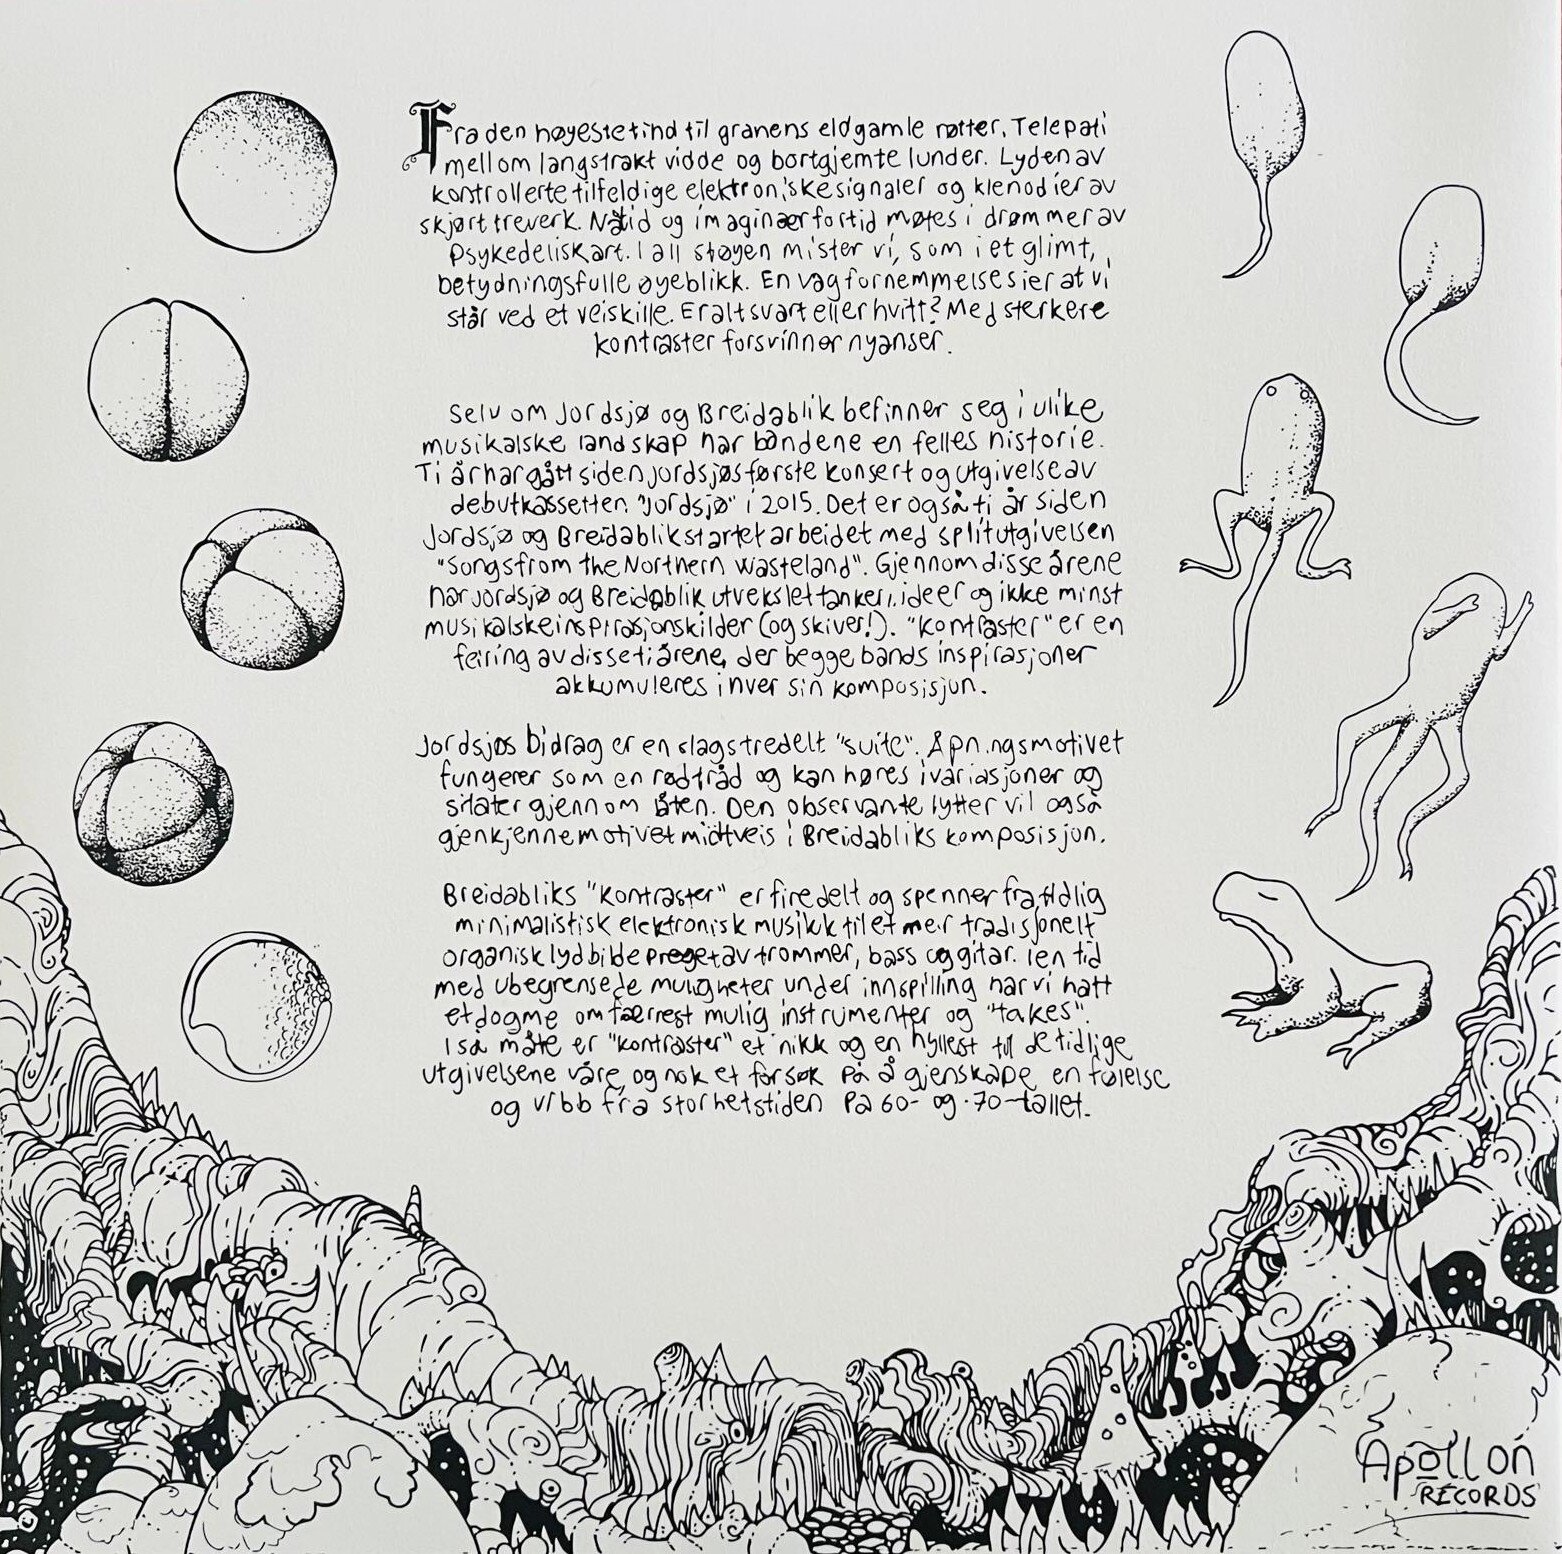 Fra den høyeste tind til granens eldgamle røtter. Telepati
mellom langstrakt vidde og bortgjemte lunder. Lyden av
kontrollerte tilfeldige elektroniske signaler og klenodier av
skjørt treverk. Nåtid og imaginær fortid møtes i drømmer av
psykedelisk art. I all støyen mister vi, som i et glimt,
betydningsfulle øyeblikk. En vag fornemmelse sier at vi
står ved et veiskille. Er alt svart eller hvitt? Med sterkere
kontraster forsvinner nyanser.
Selv om Jordsjø og Breidablik befinner seg i ulike
musikalske landskap har bandene en felles historie.
Ti år har gått siden Jordsjøs første konsert og utgivelse av
debutkassetten "Jordsjø" i 2015. Det er også ti år siden
Jordsjø og Breidablik startet arbeidet med splitutgivelsen
"Songs from the Northern Wasteland". Gjennom disse årene
har Jordsjø og Breidablik utvekslet tanker, ideer og ikke minst
musikalske inspirasjonskilder (og skiver!). "Kontraster" er en
feiring av disse ti årene, der begge bands inspirasjoner
akkumuleres i hver sin komposisjon.
Jordsjøs bidrag er en slags tredelt "suite". Åpningsmotivet
fungerer som en rød tråd og kan høres i variasjoner og
sitater gjennom låten. Den observante lytter vil også
gjenkjenne motivet midtveis i Breidabliks komposisjon.
Breidabliks "Kontraster" er firedelt og spenner fra tidlig
minimalistisk elektronisk musikk til et mer tradisjonelt
organisk lydbilde preget av trommer, bass og gitar. I en tid
med ubegrensede muligheter under innspilling har vi hatt
et dogme om færrest mulig instrumenter og "takes".
I så måte er "Kontraster" et nikk og en hyllest til de tidlige
utgivelsene våre, og nok et forsøk på å gjenskape en følelse
og vibb fra storhetstiden på 60- og 70-tallet.
Apollon
RECORDS